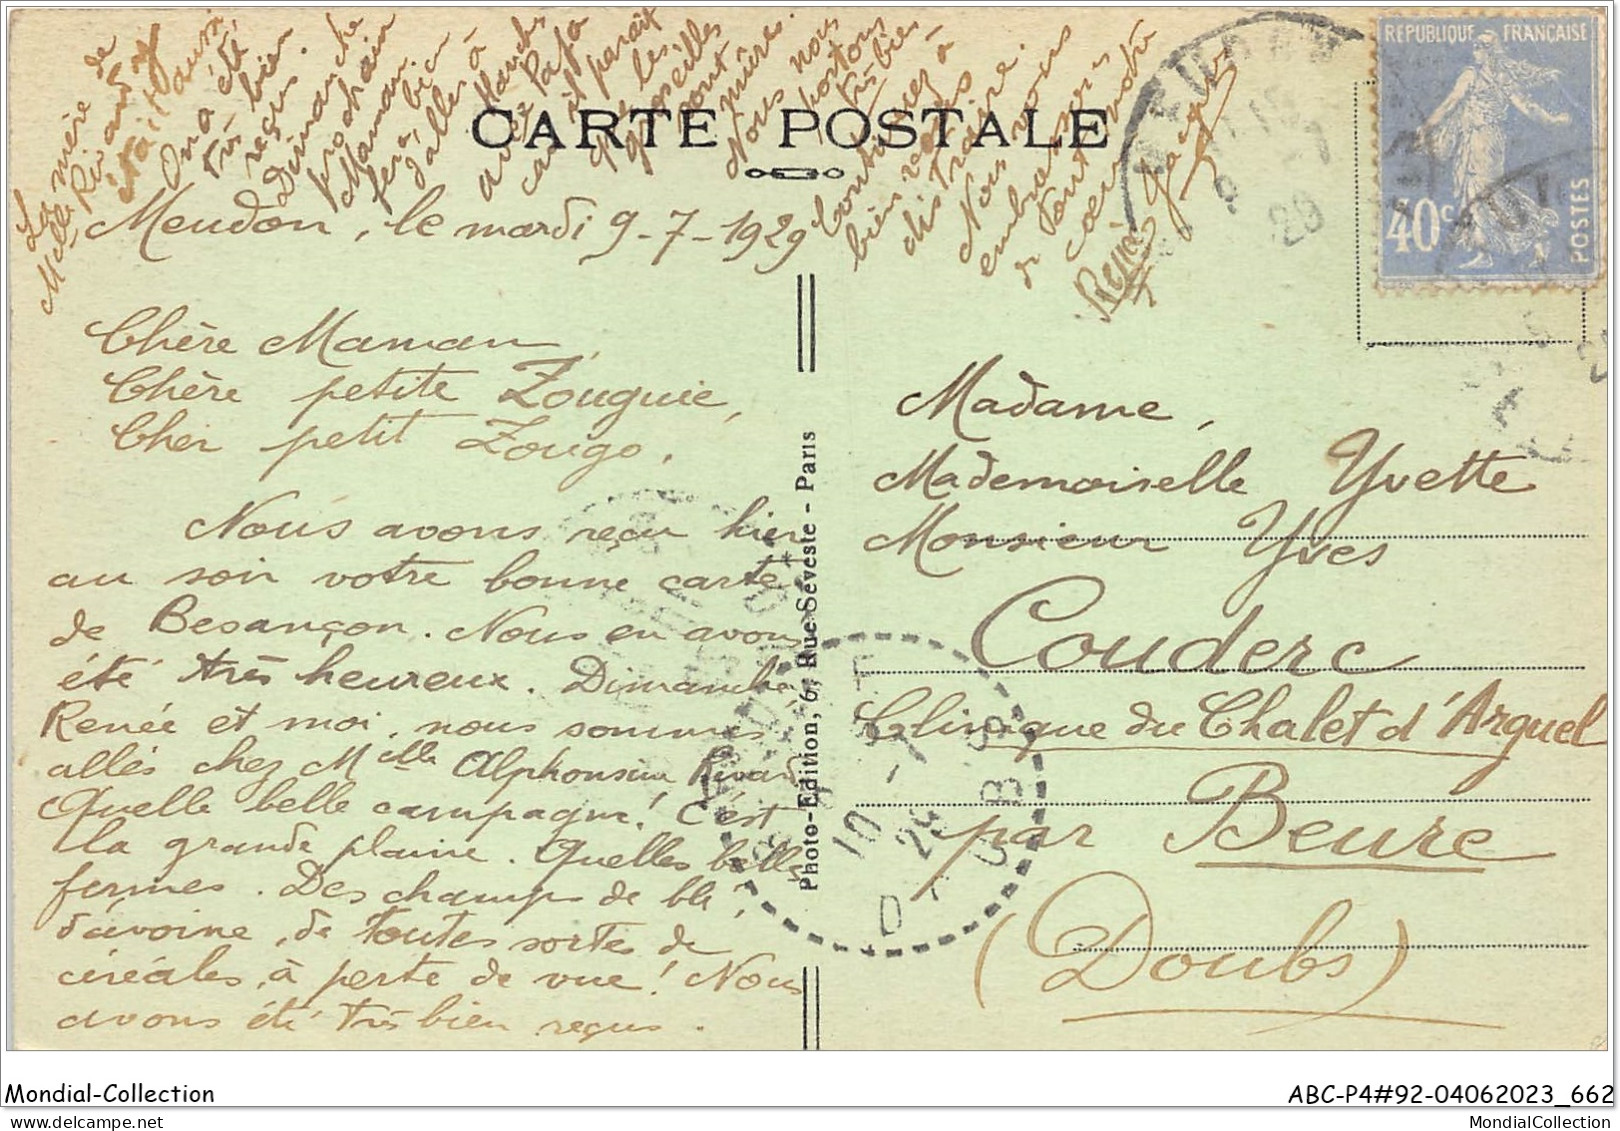 CARTE POSTALE
RÉPUBLIQUE FRANÇAISE
40c
POSTES
Meudon, le mardi 9-7-1929
Chère Maman,
Chère petite Zouguie,
Cher petit Zougo,
Nous avons reçu hier
au soir votre bonne carte
de Besançon. Nous en avons
été très heureux. Dimanche
Renée et moi, nous sommes
allés chez Melle Alphonsine Rivard
Quelle belle campagne! C'est
la grande plaine. Quelles belles
fermes. Des champs de blé,
d'avoine, de toutes sortes de
céréales, à perte de vue! Nous
avons été très bien reçus.
La mère de
Melle Rivard y
était aussi.
On a été
très bien
reçus.
Dimanche
prochain
Maman
fera bien
d'aller à
avec Papa
car il paraît
que les
groseilles
sont
mûres.
Nous nous
portons
très bien
Continuez à
bien vous
distraire.
Nous vous
embrassons
de tout notre
coeur
Renée
Photo-Edition, 6, Rue Séveste - Paris
Madame,
Mademoiselle Yvette
Monsieur Yves
Couderc
Clinique du Chalet d'Arguel
par Beure
(Doubs)
MEUDON
10 -7
29
DOUBS
Mondial-Collection
ABC-P4#92-04062023_662
MondialCollection